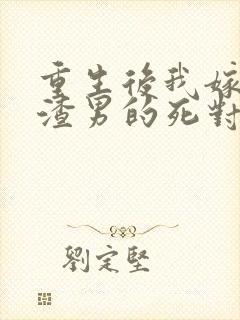 重生後我嫁
渣男的死對
劉定堅